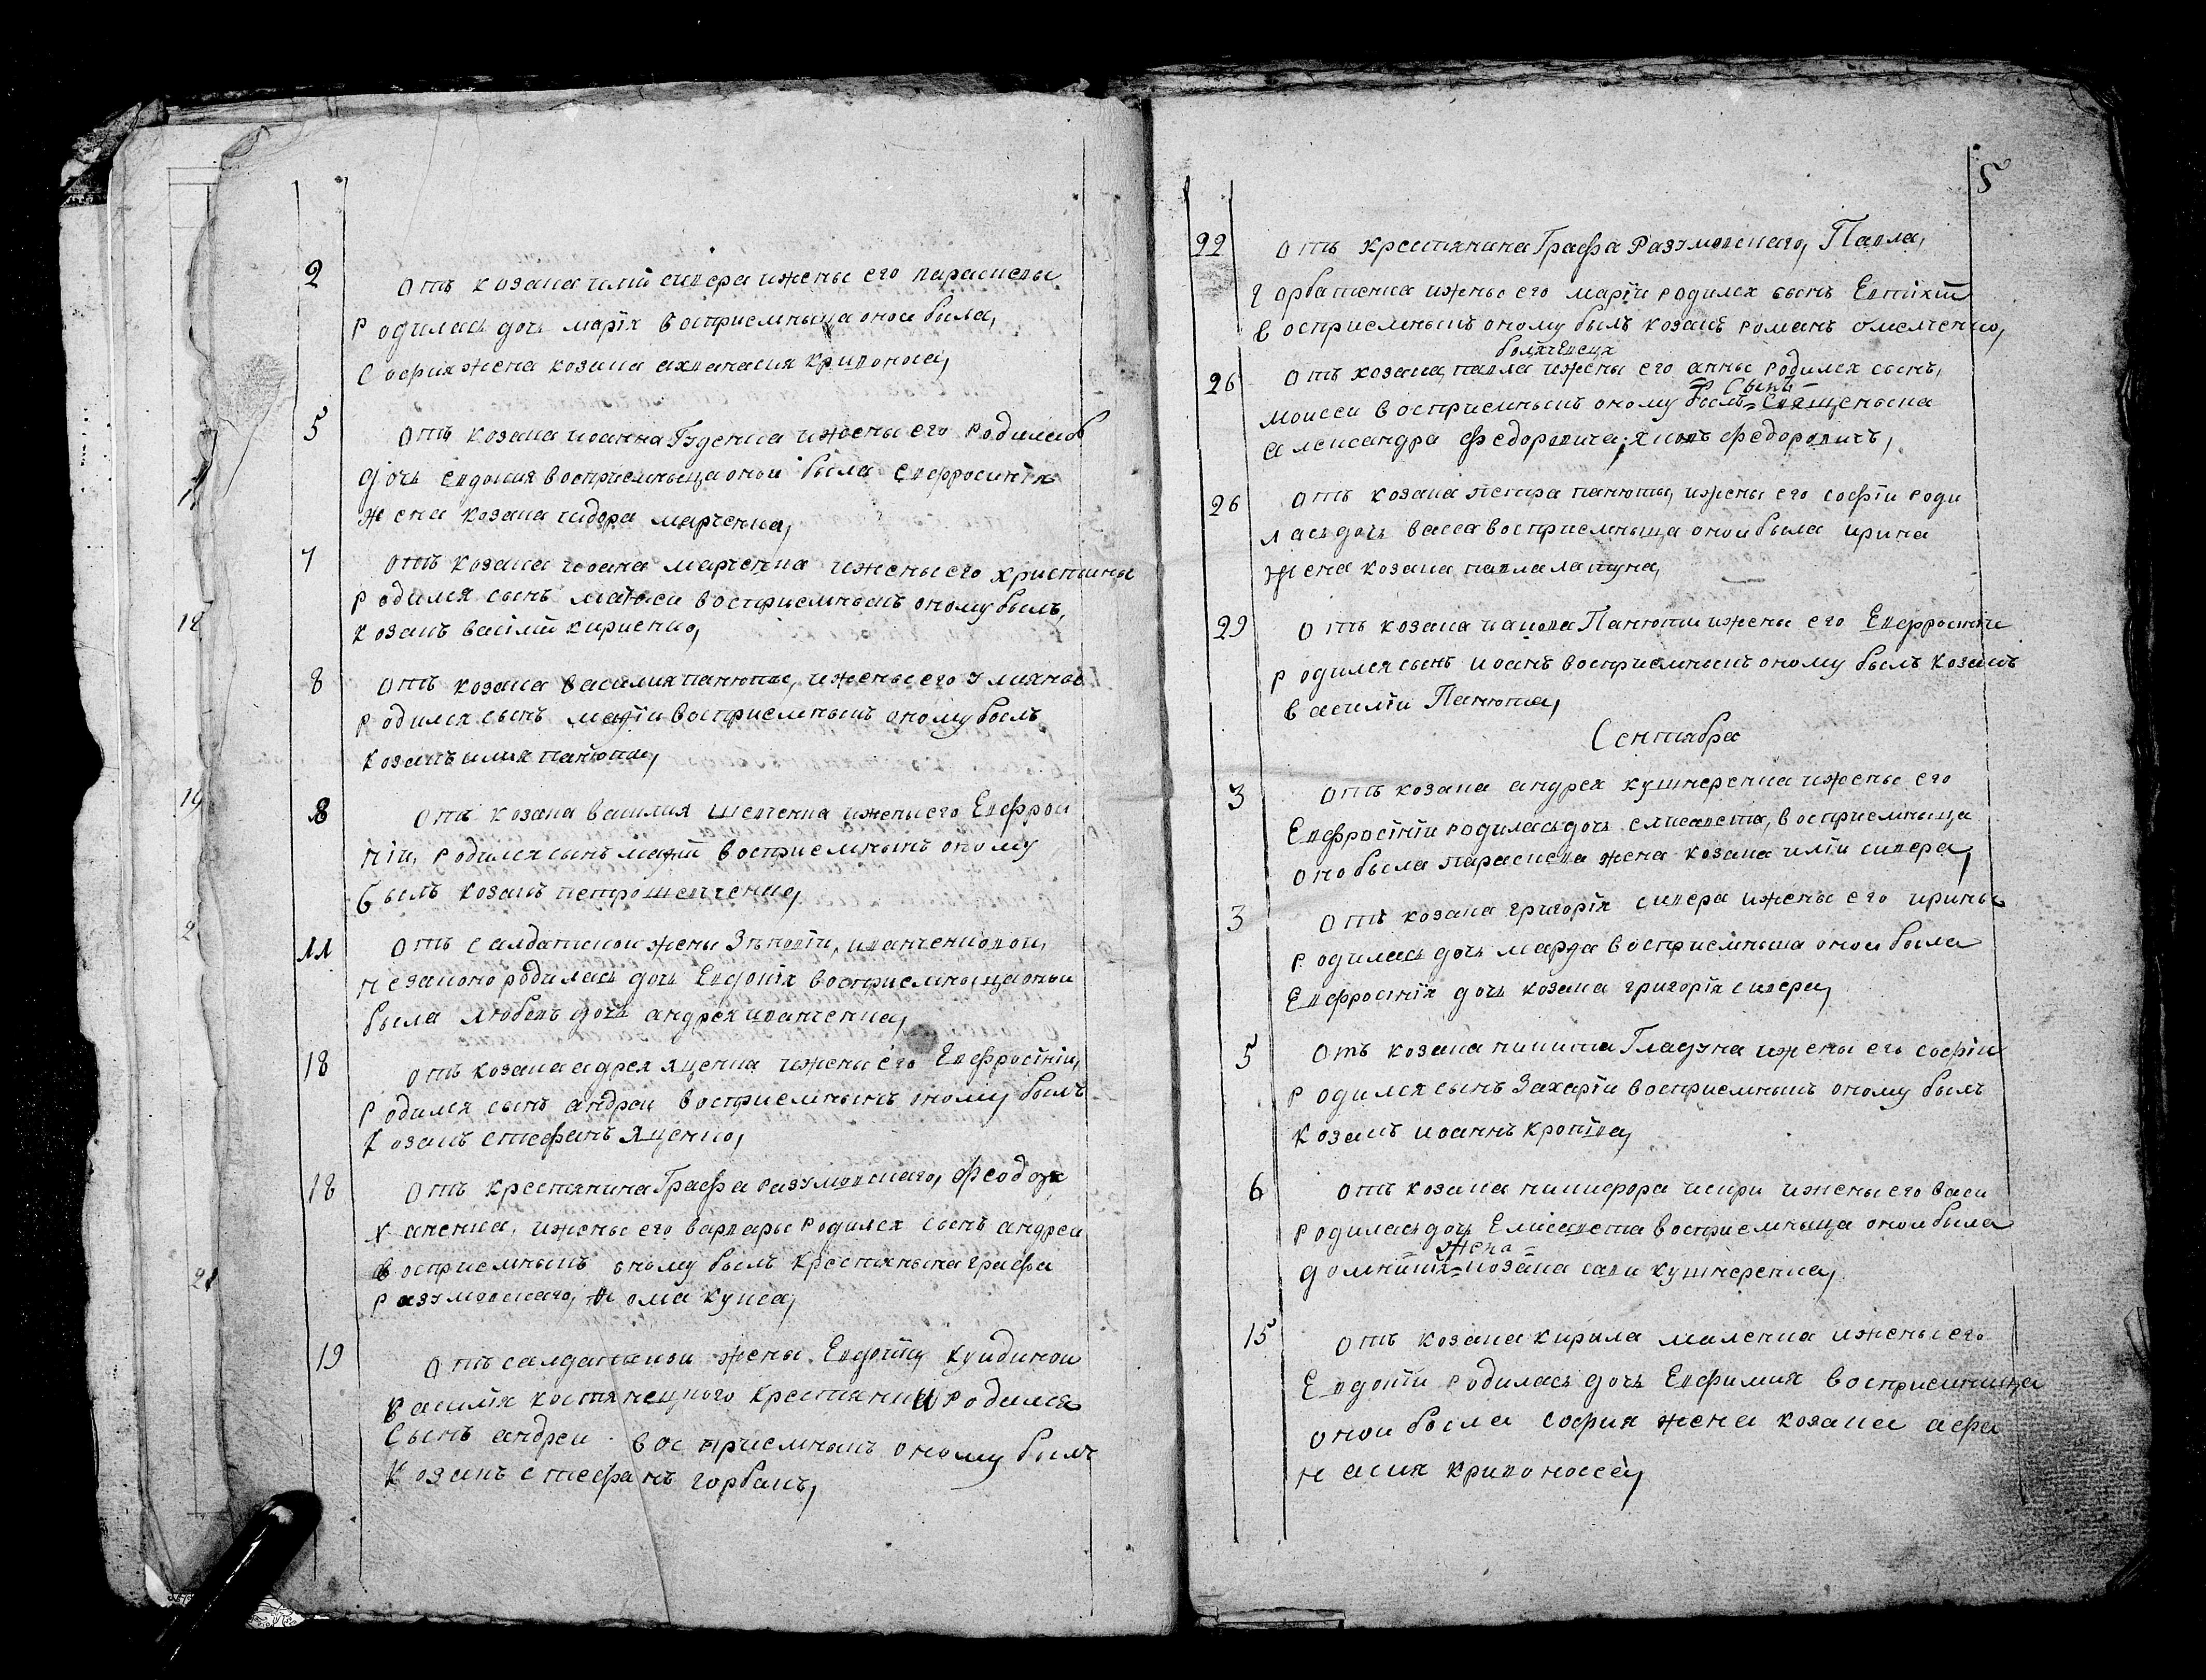 2 отъ козака илїи сивера и жены его параскевы
родилась дочь марїя восприемныца оной была,
софия жена козака ахванасия кривоноса,
5 отъ козака иоанна Гуденка и жены его родилась
дочь евдокия восприемныца оной была евфросинїя
жена козака сидора марченка,
7 отъ козака иоана марченка и жены его христины
родился сынъ матвеи восприемныкъ оному былъ,
козакъ василїи кириенко,
8 отъ козака василия панюты, и жены его улияны
родился сынъ восприемныкъ оному былъ
козакъ илия панюта,
8 отъ козака василия шевченка и жены его Евфроси
нїи, родился сынъ восприемныкъ оному
былъ козакъ петро шевченко,
11 отъ салдатской жены Зѣновїи, иванченковой,
незаконо родилась дочь Евдокїя восприемныца оной
была любовъ дочь андрея иванченка,
18 отъ козака адрея яценка и жены его Евфросїнїи,
родился сынъ андреи восприемныкъ оному былъ
козакъ стефанъ Яценко,
18 отъ крестянина Графа разумовскаго, Феодора
ханенка, и жены его варвары родился сынъ андреи
восприемныкъ оному былъ крестянына графа
разумовскаго, фома куиса,
19 отъ салдатской жены Евдокїи куидиной
василїя костянецкого крестянки родился
сынъ андреи восприемныкъ оному былъ
козакъ стефанъ горбань,
5
22 отъ крестянина Графа Разумовскаго, Павла,
горбатенка и жены его марїи родился сынъ Евтихїи
восприемныкъ оному былъ козакъ романъ омелченко,
26 отъ козака, павла и жены его анны родился сынъ,
моисеи восприемныкъ оному былъ = сынъ = Священыка
александра федоровича, яковъ федоровичъ,
26 отъ козака петра панюты, и жены его софїи роди
лась дочь васса восприемныца оной была ирина
жена козака павла лапуна,
29 отъ козака иакова Панюти и жены его Евфросинїи
родился сынъ иоанъ восприемныкъ оному былъ козакъ
василїи Панюта,
Сентябра
3 отъ козака андрея кушнеренка и жены его
Евфросїнїи родилась дочь елисавета, восприемныца
оно была параскева жена козака илїи сивера,
3 отъ козака григорїя сивера и жены его ирины
родилась дочь марфа восприемныца оной была
Евфросїнїя дочь козака григорїя сивера,
5 отъ козака никиты Гладуна и жены его софїи
родился сынъ Захарїи восприемныкъ оному былъ
козакъ иоаннъ кропїва,
6 отъ козака никифора искри и жены его васи
родилась дочь Елїсавета восприемныца оной была
домникия = жена = козака сави кушнеренка,
15 отъ козака кирила маленка и жены его
Евдокїи родилась дочь Евфимия восприемница
оной была софия жена козака афа
насия кривоноса,